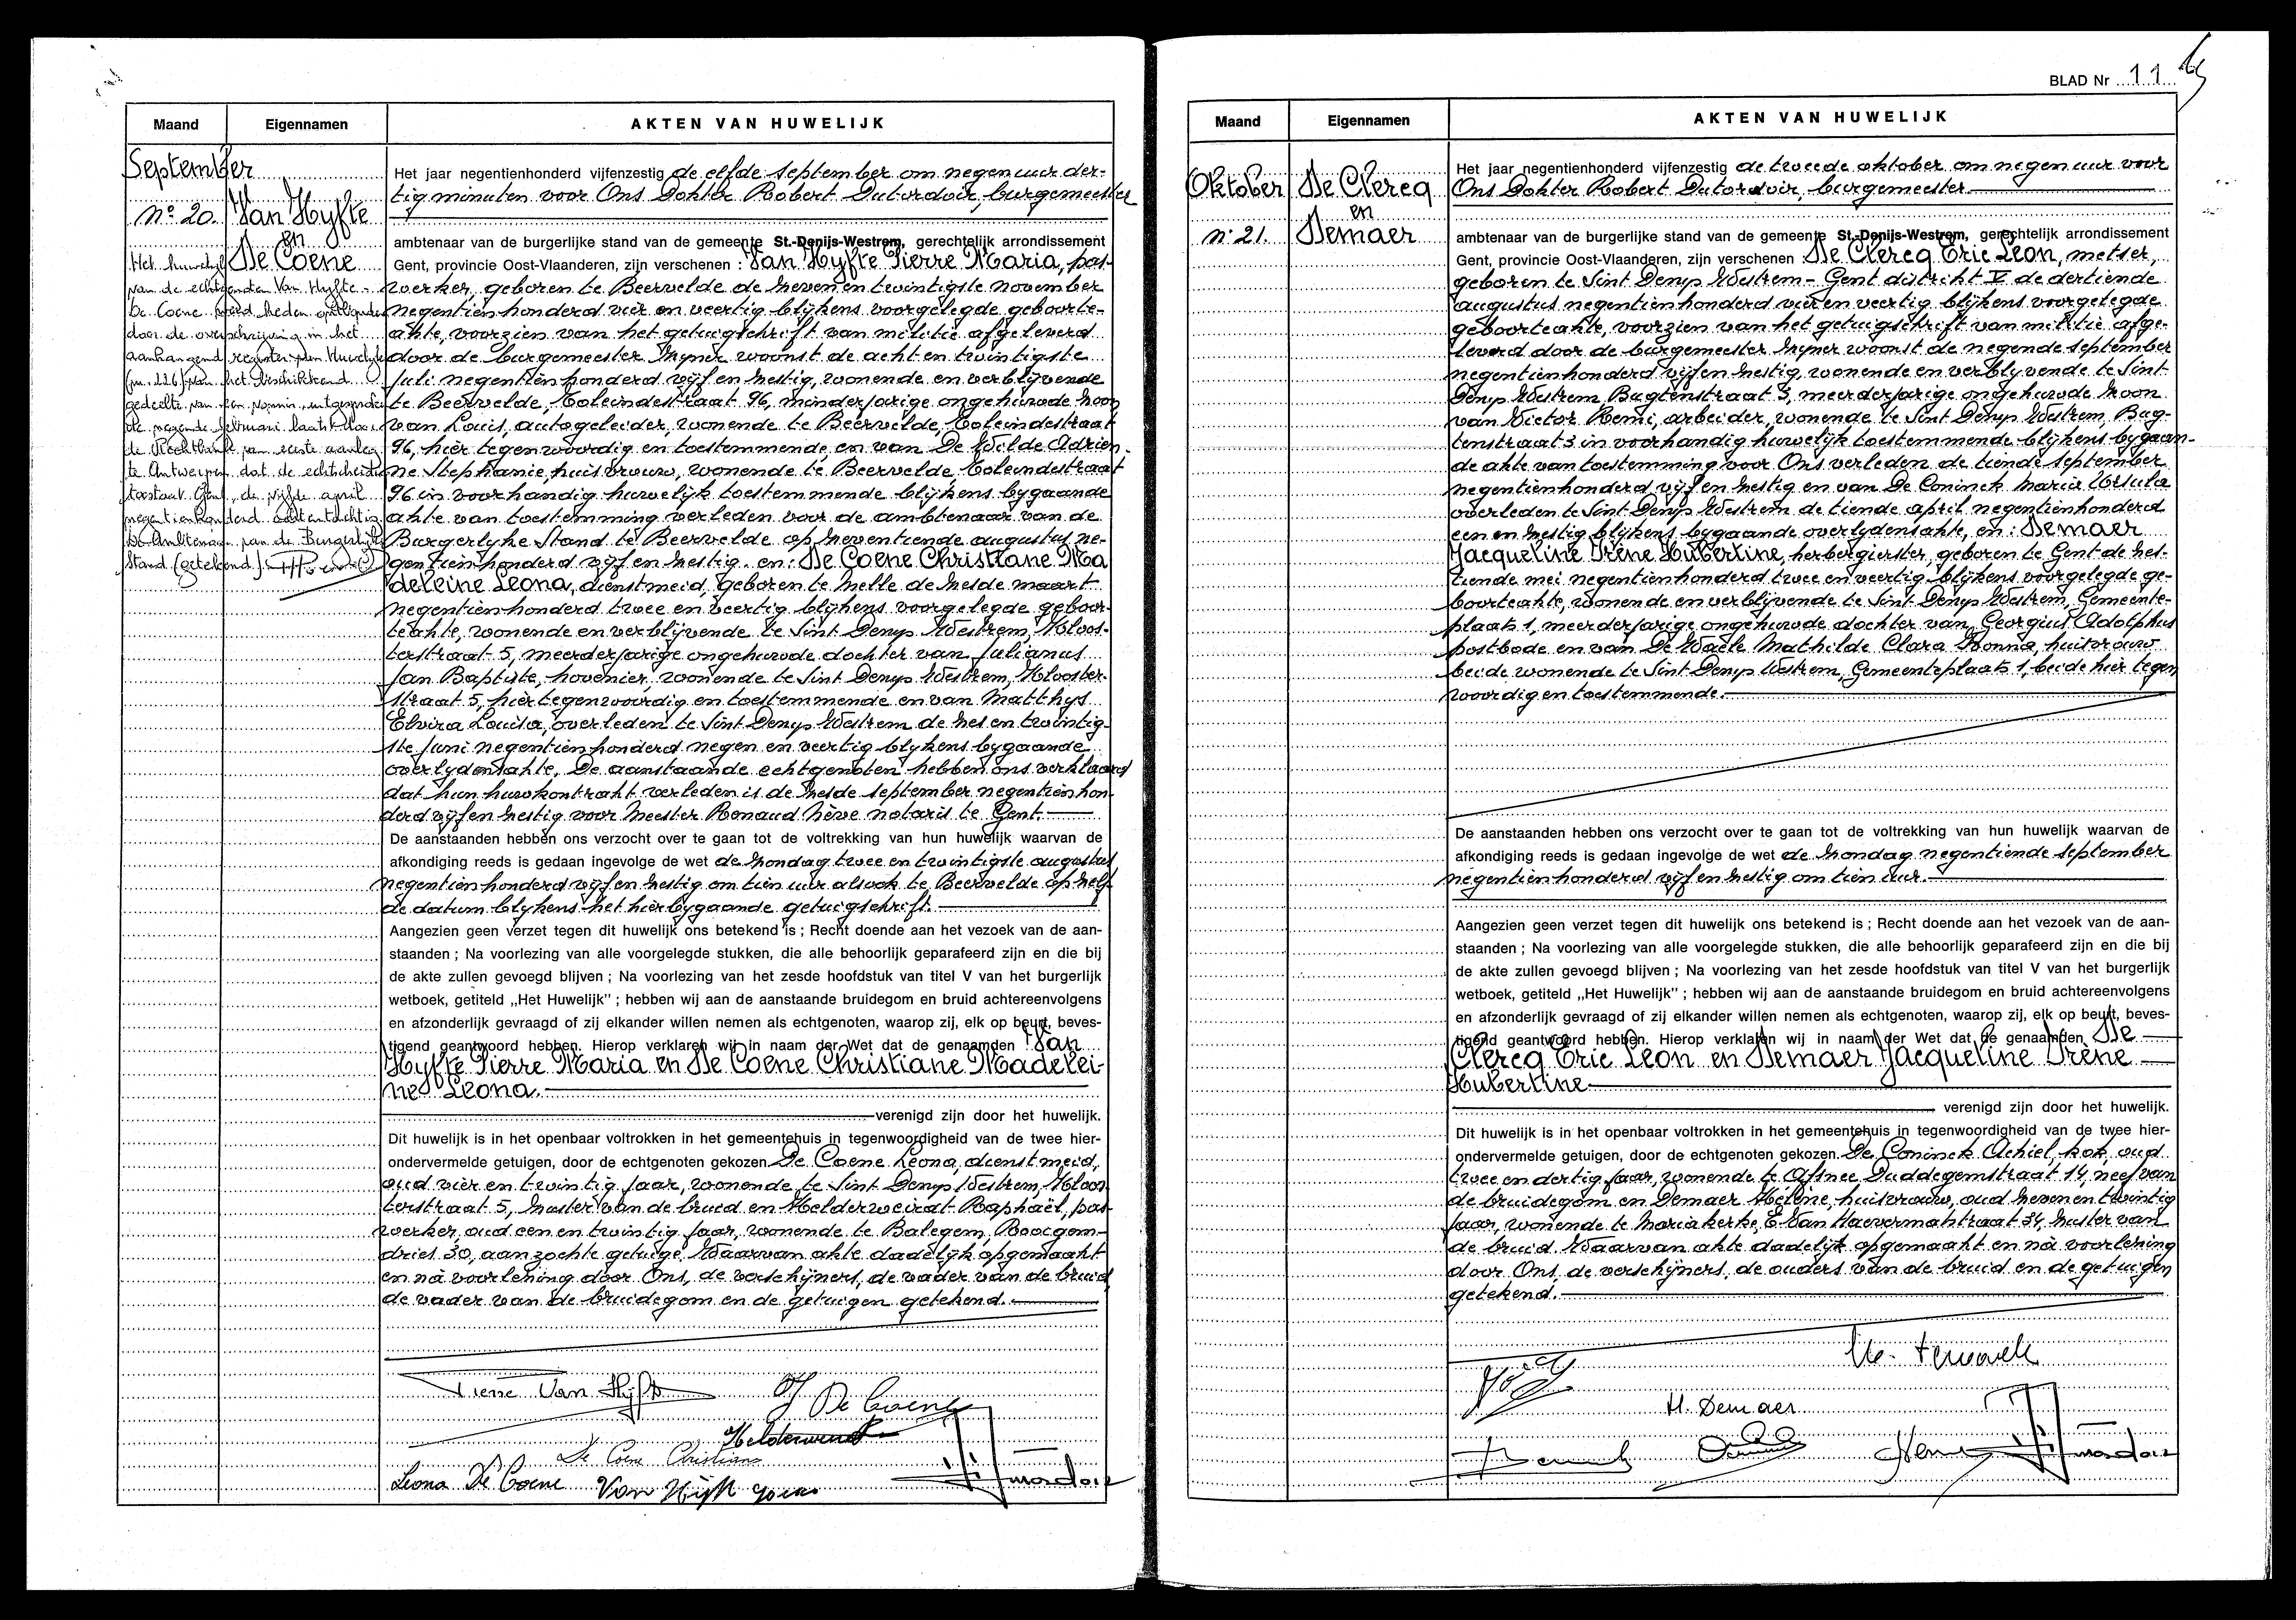 Maand
Eigennamen
AKTEN VAN HUWELIJK
September
Nº 20.
Van Hyfte
en
De Coene
Het huwelijk
van de echtgenoten Van Hyfte -
De Coene werd heden ontbonden
door de overschrijving in het
aanhangend register van Huwelijk
(nr. 226) van het beschikkend
gedeelte van een vonnis, uitgesproken
de negende februari laatst door
de Rechtbank van eerste aanleg
te Antwerpen dat de echtscheiding
toestaat. Gent, de vijfde april
negentienhonderd achtentachtig
De Ambtenaar van de Burgerlijke
Stand (getekend).
Het jaar negentienhonderd vijfenzestig de elfde september om negen uur der-
tig minuten voor Ons Dokter Robert Dutordoir, burgemeester
ambtenaar van de burgerlijke stand van de gemeente St.-Denijs-Westrem, gerechtelijk arrondissement
Gent, provincie Oost-Vlaanderen, zijn verschenen : Van Hyfte Pierre Maria, pas-
werker, geboren te Beervelde de zeven en twintigste november
negentienhonderd vier en veertig blijkens voorgelegde geboorte-
akte, voorzien van het getuigschrift van militie afgeleverd
door de burgemeester zijner woonst de acht en twintigste
juli negentienhonderd vijf en zestig, wonende en verblijvende
te Beervelde, Toleindestraat 96, minderjarige ongehuwde zoon
van Louis, autogeleider, wonende te Beervelde, Toleindestraat
96, hier tegenwoordig en toestemmende en van De Wilde Adrien-
ne Stephanie, huisvrouw, wonende te Beervelde Toleindestraat
96 in voorhandig huwelijk toestemmende blijkens bygaande
akte van toestemming verleden voor de ambtenaar van de
Burgerlyke Stand te Beervelde op zeventiende augustus ne-
gentienhonderd vijf en zestig. en: De Coene Christiane Ma
deleine Leona, dienstmeid, geboren te Melle de zesde maart
negentienhonderd twee en veertig blijkens voorgelegde geboor-
teakte, wonende en verblijvende te Sint Denys Westrem, Kloos-
terstraat 5, meerderjarige ongehuwde dochter van Julianus
Jan Baptiste, hovenier, wonende te Sint Denys Westrem, Klooster-
straat 5, hier tegenwoordig en toestemmende en van Matthys
Elvira Louisa, overleden te Sint Denys Westrem de zes en twintig-
ste juni negentienhonderd negen en veertig blykens bygaande
overlydensakte. De aanstaande echtgenoten hebben ons verklaard
dat hun huwkontrakt verleden is de zesde september negentienhon-
derd vijf en zestig voor Meester Renaud Nève notaris te Gent.
De aanstaanden hebben ons verzocht over te gaan tot de voltrekking van hun huwelijk waarvan de
afkondiging reeds is gedaan ingevolge de wet de zondag twee en twintigste augustus
negentienhonderd vijf en zestig om tien uur alsook te Beervelde op zelf-
de datum blykens het hierbygaande getuigschrift.
Aangezien geen verzet tegen dit huwelijk ons betekend is ; Recht doende aan het vezoek van de aan-
staanden ; Na voorlezing van alle voorgelegde stukken, die alle behoorlijk geparafeerd zijn en die bij
de akte zullen gevoegd blijven ; Na voorlezing van het zesde hoofdstuk van titel V van het burgerlijk
wetboek, getiteld „Het Huwelijk” ; hebben wij aan de aanstaande bruidegom en bruid achtereenvolgens
en afzonderlijk gevraagd of zij elkander willen nemen als echtgenoten, waarop zij, elk op beurt, beves-
tigend geantwoord hebben. Hierop verklaren wij in naam der Wet dat de genaamden Van
Hyfte Pierre Maria en De Coene Christiane Madelei-
ne Leona.
verenigd zijn door het huwelijk.
Dit huwelijk is in het openbaar voltrokken in het gemeentehuis in tegenwoordigheid van de twee hier-
ondervermelde getuigen, door de echtgenoten gekozen De Coene Leona, dienstmeid,
oud vier en twintig jaar, wonende te Sint Denys Westrem, Kloos-
terstraat 5, zuster van de bruid en Helderweirat Raphaël, pas-
werker, oud een en twintig jaar, wonende te Balegem, Rooigem-
dries 30, aanzochte getuige. Waarvan akte dadelijk opgemaakt
en nà voorlezing door Ons, de verschijners, de vader van de bruid,
de vader van de bruidegom en de getuigen getekend.
Pierre Van Hyfte
J De Coene
De Coene Christiane
Leona De Coene
BLAD Nr 11
Maand
Eigennamen
AKTEN VAN HUWELIJK
Oktober
Nº 21.
De Clercq
en
Demaer
Het jaar negentienhonderd vijfenzestig de tweede oktober om negen uur voor
Ons Dokter Robert Dutordoir, burgemeester
ambtenaar van de burgerlijke stand van de gemeente St.-Denijs-Westrem, gerechtelijk arrondissement
Gent, provincie Oost-Vlaanderen, zijn verschenen : De Clercq Eric Leon, metser,
geboren te Sint Denys Westrem - Gent district V de dertiende
augustus negentienhonderd vier en veertig blijkens voorgelegde
geboorteakte, voorzien van het getuigschrift van militie afge-
leverd door de burgemeester zijner woonst de negende september
negentienhonderd vijf en zestig, wonende en verblyvende te Sint
Denys Westrem, Bugtenstraat 3, meerderjarige ongehuwde zoon
van Victor Remi, arbeider, wonende te Sint Denys Westrem, Bug-
tenstraat 3 in voorhandig huwelijk toestemmende blijkens bygaan-
de akte van toestemming voor Ons verleden de tiende september
negentienhonderd vijf en zestig en van De Coninck Maria Ursula
overleden te Sint Denys Westrem de tiende april negentienhonderd
een en zestig blijkens bygaande overlydensakte, en : Demaer
Jacqueline Irène Hubertine, herbergierster, geboren te Gent de zes-
tiende mei negentienhonderd twee en veertig blijkens voorgelegde ge-
boorteakte, wonende en verblijvende te Sint Denys Westrem, Gemeente-
plaats 1, meerderjarige ongehuwde dochter van Georgius Adolphus
postbode en van De Waele Mathilde Clara Ronna, huisvrouw
beide wonende te Sint Denys Westrem, Gemeenteplaats 1, beide hier tegen
woordig en toestemmende.
De aanstaanden hebben ons verzocht over te gaan tot de voltrekking van hun huwelijk waarvan de
afkondiging reeds is gedaan ingevolge de wet de zondag negentiende september
negentienhonderd vijf en zestig om tien uur.
Aangezien geen verzet tegen dit huwelijk ons betekend is ; Recht doende aan het vezoek van de aan-
staanden ; Na voorlezing van alle voorgelegde stukken, die alle behoorlijk geparafeerd zijn en die bij
de akte zullen gevoegd blijven ; Na voorlezing van het zesde hoofdstuk van titel V van het burgerlijk
wetboek, getiteld „Het Huwelijk” ; hebben wij aan de aanstaande bruidegom en bruid achtereenvolgens
en afzonderlijk gevraagd of zij elkander willen nemen als echtgenoten, waarop zij, elk op beurt, beves-
tigend geantwoord hebben. Hierop verklaren wij in naam der Wet dat de genaamden De
Clercq Eric Leon en Demaer Jacqueline Irène
Hubertine
verenigd zijn door het huwelijk.
Dit huwelijk is in het openbaar voltrokken in het gemeentehuis in tegenwoordigheid van de twee hier-
ondervermelde getuigen, door de echtgenoten gekozen De Coninck Achiel, kok, oud
twee en dertig jaar, wonende te Afsnee Duddegemstraat 14, neef van
de bruidegom en Demaer Hélène, huisvrouw, oud zeven en twintig
jaar, wonende te Mariakerke, E. Van Haevermatstraat 34, zuster van
de bruid. Waarvan akte dadelijk opgemaakt en nà voorlezing
door Ons, de verschijners, de ouders van de bruid en de getuigen
getekend.
H. Demaer